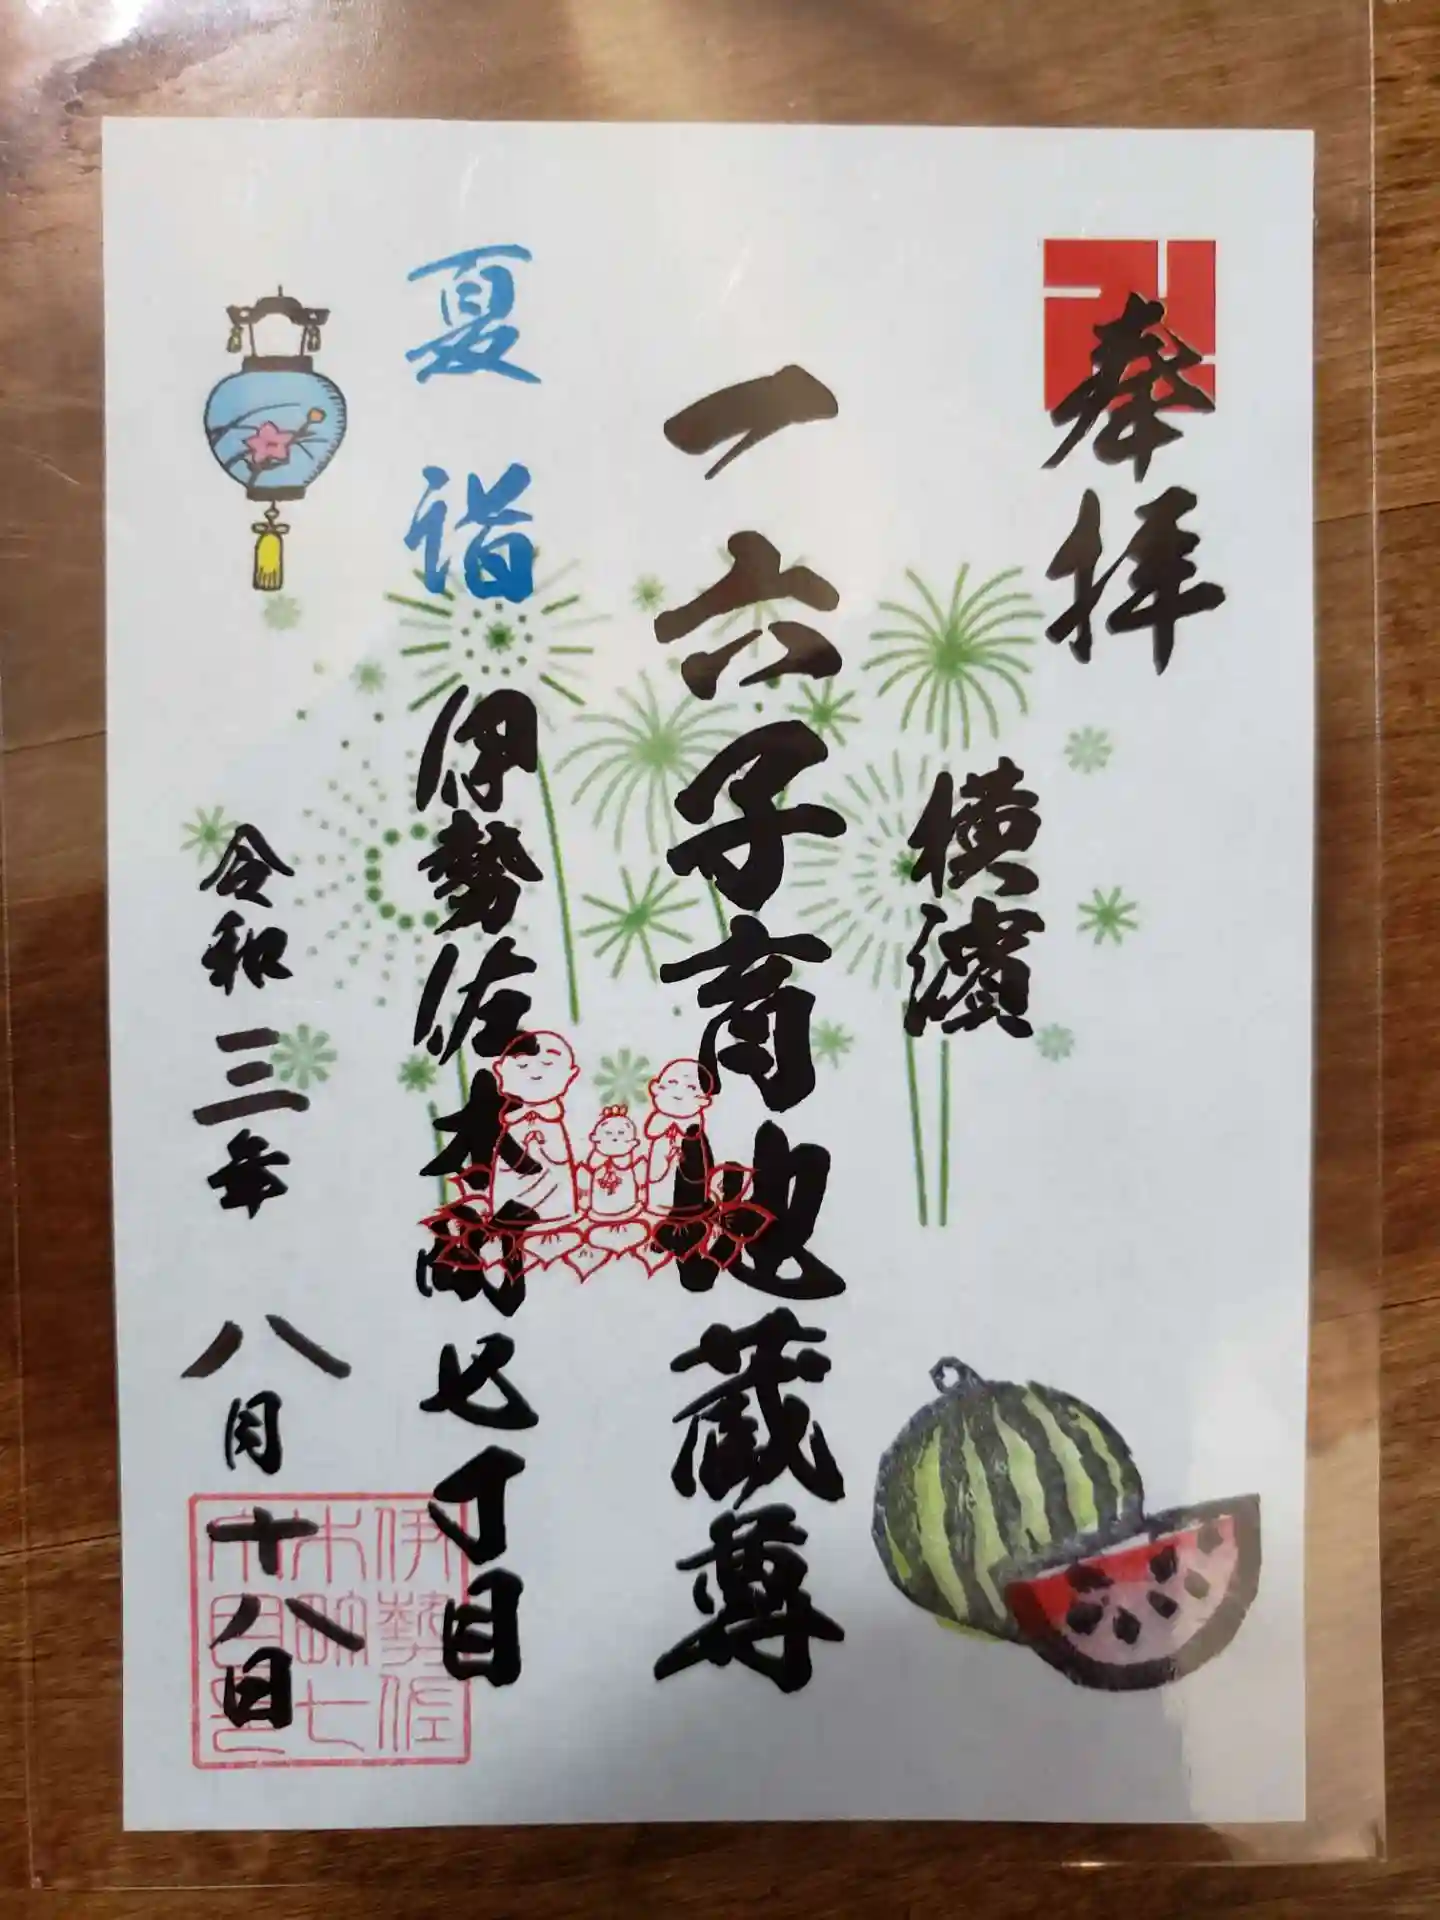 奉拝
横濱
一六子育地蔵尊
夏詣
伊勢佐木町七丁目
令和三年 八月十八日
伊勢佐
木町七